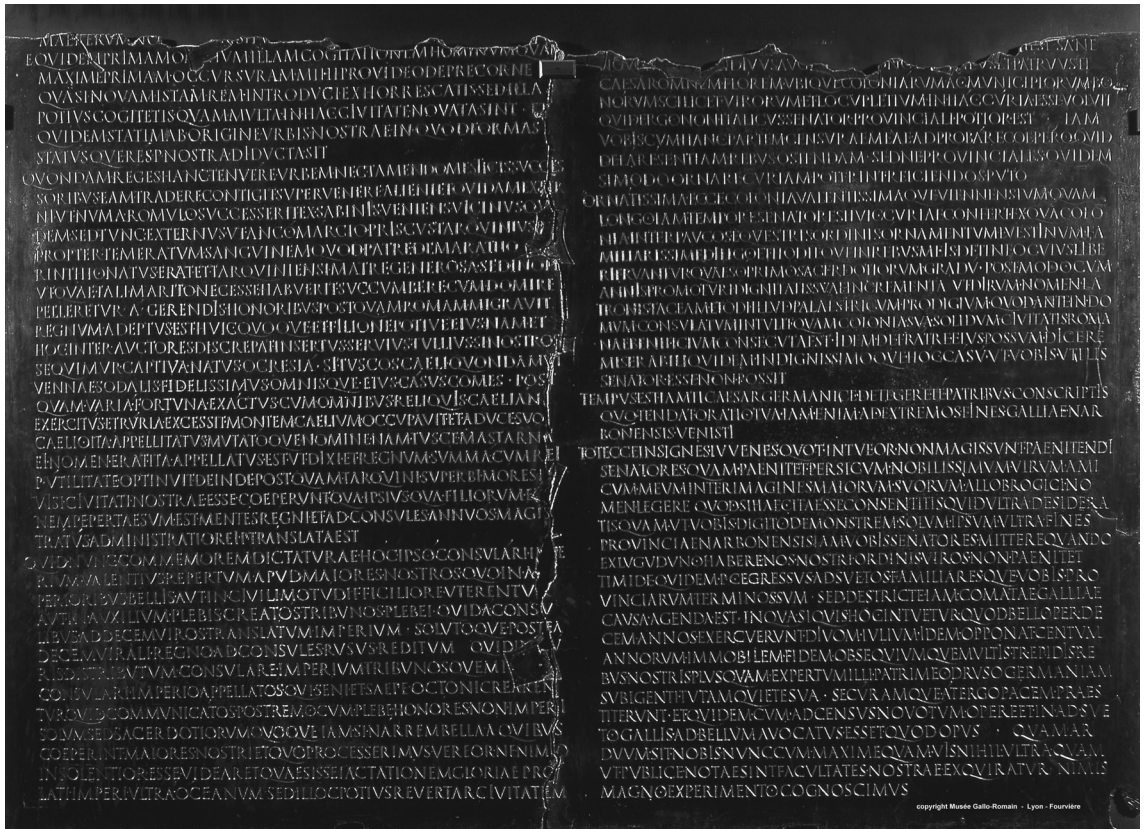 MAE RERVM NO
EQVIDEM PRIMAM OMNIVM ILLAM COGITATIONEM HOMINVM QVAM
MAXIME PRIMAM OCCVRSVRAM MIHI PROVIDEO DEPRECOR NE
QVASI NOVAM ISTAM REM INTRODVCI EXHORRESCATIS SED ILLA
POTIVS COGITETIS QVAM MVLTA IN HAC CIVITATE NOVATA SINT
QVIDEM STATIM AB ORIGINE VRBIS NOSTRAE IN QVOD FORMAS
STATVSQVE RES P NOSTRA DIDVCTA SIT
QVONDAM REGES HANC TENVERE VRBEM NEC TAMEN DOMESTICIS SVCCES
SORIBVS EAM TRADERE CONTIGIT SVPERVENERE ALIENI ET QVIDAM EXTER
NI VT NVMA ROMVLO SVCCESSERIT EX SABINIS VENIENS VICINVS QVI
DEM SED TVNC EXTERNVS VT ANCO MARCIO PRISCVS TARQVINIVS
PROPTER TEMERATVM SANGVINEM QVOD PATRE DEMARATHO
RINTHIO NATVS ERAT ET TARQVINIENSI MATRE GENEROSA SED INOPI
VT QVAE TALI MARITO NECESSE HABVERIT SVCCVMBERE CVM DOMI RE
PELLERETVR A GERENDIS HONORIBVS POSTQVAM ROMAM MIGRAVIT
REGNVM ADEPTVS EST HVIC QVOQVE ET FILIO NEPOTIVE EIVS NAM ET
HOC INTER AVCTORES DISCREPAT INSERTVS SERVIVS TVLLIVS SI NOSTROS
SEQVIMVR CAPTIVA NATVS OCRESIA · SI TVSCOS CAELI QVONDAM VI
VENNAE SODALIS FIDELISSIMVS OMNISQVE EIVS CASVS COMES · POST
QVAM VARIA FORTVNA EXACTVS CVM OMNIBVS RELIQVIS CAELIANI
EXERCITVS ETRVRIA EXCESSIT MONTEM CAELIVM OCCVPAVIT ET A DVCE SVO
CAELIO ITA APPELLITATVS MVTATOQVE NOMINE NAM TVSCE MASTARNA
EI NOMEN ERAT ITA APPELLATVS EST VT DIXI ET REGNVM SVMMA CVM REI
P VTILITATE OPTINVIT DEINDE POSTQVAM TARQVINI SVPERBI MORES IN
VISI CIVITATI NOSTRAE ESSE COEPERVNT QVA IPSIVS QVA FILIORVM EI
NEMPE PERTAESVM EST MENTES REGNI ET AD CONSVLES ANNVOS MAGIS
TRATVS ADMINISTRATIO REI P TRANSLATA EST
QVID NVNC COMMEMOREM DICTATVRAE HOC IPSO CONSVLARI IMPE
RIVM VALENTIVS REPERTVM APVD MAIORES NOSTROS QVO IN AS
PERIORIBVS BELLIS AVT IN CIVILI MOTV DIFFICILIORE VTERENTVR
AVT IN AVXILIVM PLEBIS CREATOS TRIBVNOS PLEBEI QVID A CONSV
LIBVS AD DECEMVIROS TRANSLATVM IMPERIVM · SOLVTOQVE POSTEA
DECEMVIRALI REGNO AD CONSVLES RVSVS REDITVM QVID IN
RIS DISTRIBVTVM CONSVLARE IMPERIVM TRIBVNOSQVE M
CONSVLARI IMPERIO APPELLATOS QVI SENI ET SAEPE OCTONI CREAREN
TVR QVID COMMVNICATOS POSTREMO CVM PLEBE HONORES NON IMPERI
SOLVM SED SACERDOTIORVM QVOQVE IAM SI NARREM BELLA A QVIBVS
COEPERINT MAIORES NOSTRI ET QVO PROCESSERIMVS VEREOR NE NIMIO
INSOLENTIOR ESSE VIDEAR ET QVAESISSE IACTATIONEM GLORIAE PRO
LATI IMPERI VLTRA OCEANVM SED ILLOC POTIVS REVERTAR CIVITATEM
EST SANE
NOVO DIVVS AVG PATRVVS TI
CAESAR OMNEM FLOREM VBIQVE COLONIARVM AC MVNICIPIORVM BO
NORVM SCILICET VIRORVM ET LOCVPLETIVM IN HAC CVRIA ESSE VOLVIT
QVID ERGO NON ITALICVS SENATOR PROVINCIALI POTIOR EST IAM
VOBIS CVM HANC PARTEM CENSVRAE MEAE ADPROBARE COEPERO QVID
DE EA RE SENTIAM REBVS OSTENDAM SED NE PROVINCIALES QVIDEM
SI MODO ORNARE CVRIAM POTERINT REICIENDOS PVTO
ORNATISSIMA ECCE COLONIA VALENTISSIMAQVE VIENNENSIVM QVAM
LONGO IAM TEMPORE SENATORES HVIC CVRIAE CONFERT EX QVA COLO
NIA INTER PAVCOS EQVESTRIS ORDINIS ORNAMENTVM L VESTINVM FA
MILIARISSIME DILIGO ET HODIEQVE IN REBVS MEIS DETINEO CVIVS LIBE
RI FRVANTVR QVAESO PRIMO SACERDOTIORVM GRADV · POST MODO CVM
ANNIS PROMOTVRI DIGNITATIS SVAE INCREMENTA VT DIRVM NOMEN LA
TRONIS TACEAM ET ODI ILLVD PALAESTRICVM PRODIGIVM QVOD ANTE IN DO
MVM CONSVLATVM INTVLIT QVAM COLONIA SVA SOLIDVM CIVITATIS ROMA
NAE BENIFICIVM CONSECVTA EST IDEM DE FRATRE EIVS POSSVM DICERE
MISERABILI QVIDEM INDIGNISSIMOQVE HOC CASV VT VOBIS VTILIS
SENATOR ESSE NON POSSIT
TEMPVS EST IAM TI CAESAR GERMANICE DETEGERE TE PATRIBVS CONSCRIPTIS
QVO TENDAT ORATIO TVA IAM ENIM AD EXTREMOS FINES GALLIAE NAR
BONENSIS VENISTI
TOT ECCE INSIGNES IVVENES QVOT INTVEOR NON MAGIS SVNT PAENITENDI
SENATORES QVAM PAENITET PERSICVM NOBILISSIMVM VIRVM AMI
CVM MEVM INTER IMAGINES MAIORVM SVORVM ALLOBROGICI NO
MEN LEGERE QVOD SI HAEC ITA ESSE CONSENTITIS QVID VLTRA DESIDERA
TIS QVAM VT VOBIS DIGITO DEMONSTREM SOLVM IPSVM VLTRA FINES
PROVINCIAE NARBONENSIS IAM VOBIS SENATORES MITTERE QVANDO
EX LVGVDVNO HABERE NOS NOSTRI ORDINIS VIROS NON PAENITET
TIMIDE QVIDEM P C EGRESSVS ADSVETOS FAMILIARESQVE VOBIS PRO
VINCIARVM TERMINOS SVM · SED DESTRICTE IAM COMATAE GALLIAE
CAVSA AGENDA EST IN QVA SI QVIS HOC INTVETVR QVOD BELLO PER DE
CEM ANNOS EXERCVERVNT DIVOM IVLIVM IDEM OPPONAT CENTVM
ANNORVM IMMOBILEM FIDEM OBSEQVIVMQVE MVLTIS TREPIDIS RE
BVS NOSTRIS PLVSQVAM EXPERTVM ILLI PATRI MEO DRVSO GERMANIAM
SVBIGENTI TVTAM QVIETE SVA · SECVRAMQVE A TERGO PACEM PRAES
TITERVNT ET QVIDEM CVM AD CENSVS NOVO TVM OPERE ET IN ADSVE
TO GALLIS AD BELLVM AVOCATVS ESSET QVOD OPVS · QVAM AR
DVVM SIT NOBIS NVNC CVM MAXIME QVAMVIS NIHIL VLTRA QVAM
VT PVBLICE NOTAE SINT FACVLTATES NOSTRAE EXQVIRATVR NIMIS
MAGNO EXPERIMENTO COGNOSCIMVS
copyright Musée Gallo-Romain - Lyon - Fourvière